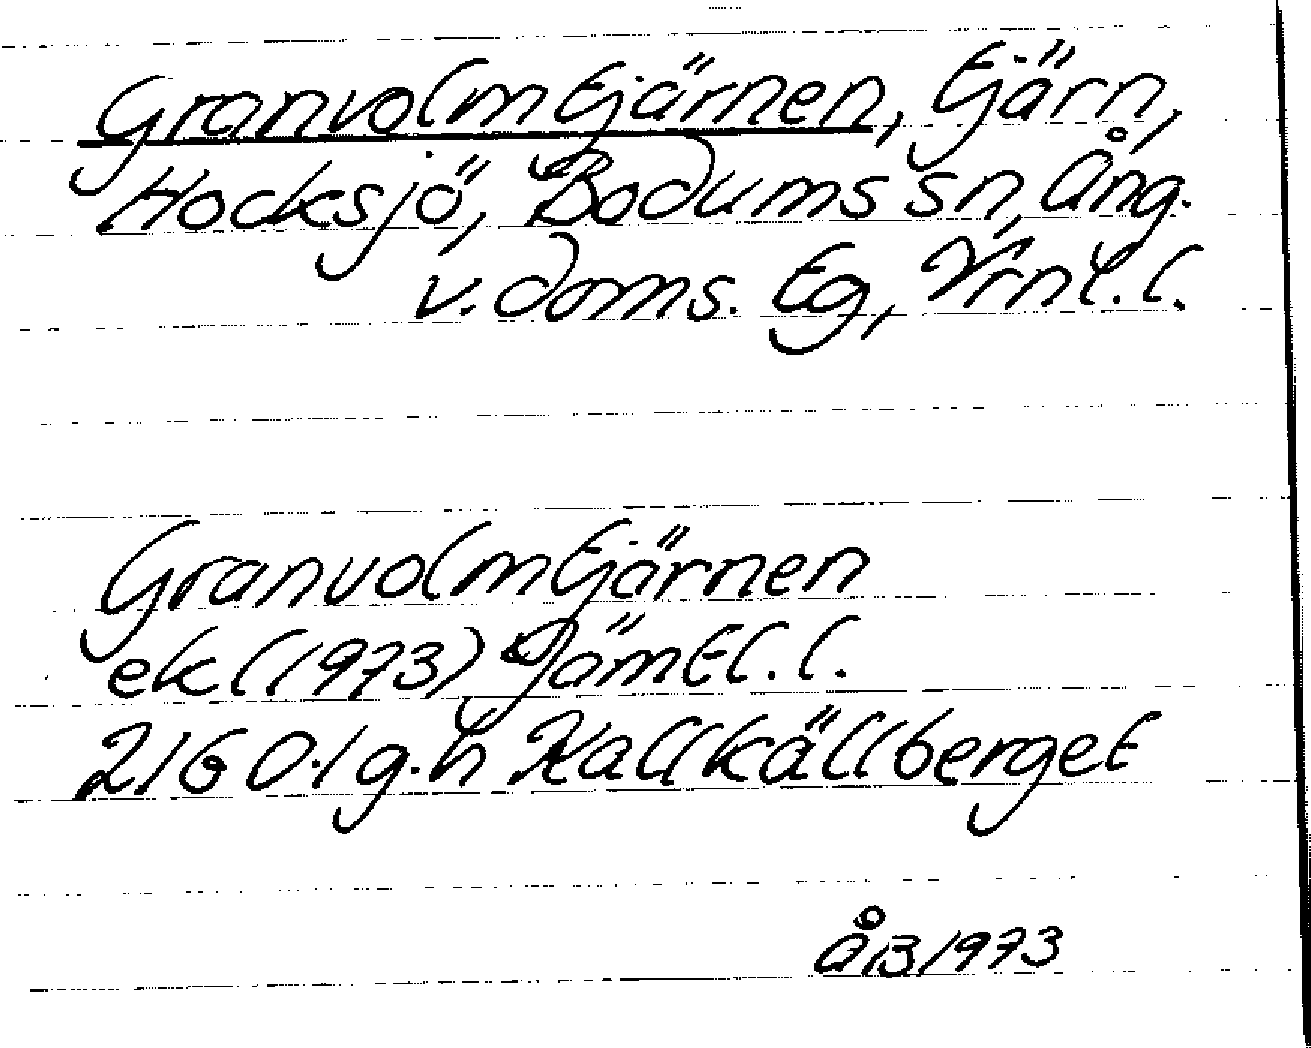 Granvolmtjärnen, tjärn,
Hocksjö, Bodums sn, Ång.
v. doms. tg,
Granvolmtjärnen
ek (1973) Jämtl. l.
21G 0-1 g.h Kallkällberget
ÅB 1973